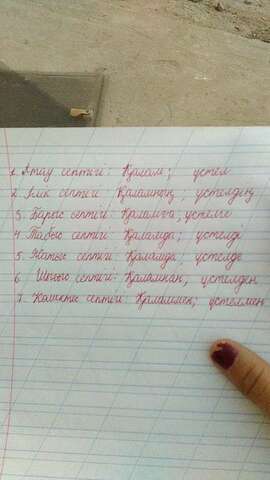 1. Атау септігі: Қалам; үстел
2. Ілік септігі: Қаламның; үстелдең
3. Барыс септігі: Қаламға; үстелге
4 Табыс септігі: Қаламда; үстелді
5. Жатыс септігі: Қаламда үстелде
6 Шығыс септігі: Қаламнан, үстелден
7. Көмектес септігі: Қаламмен; үстелмен